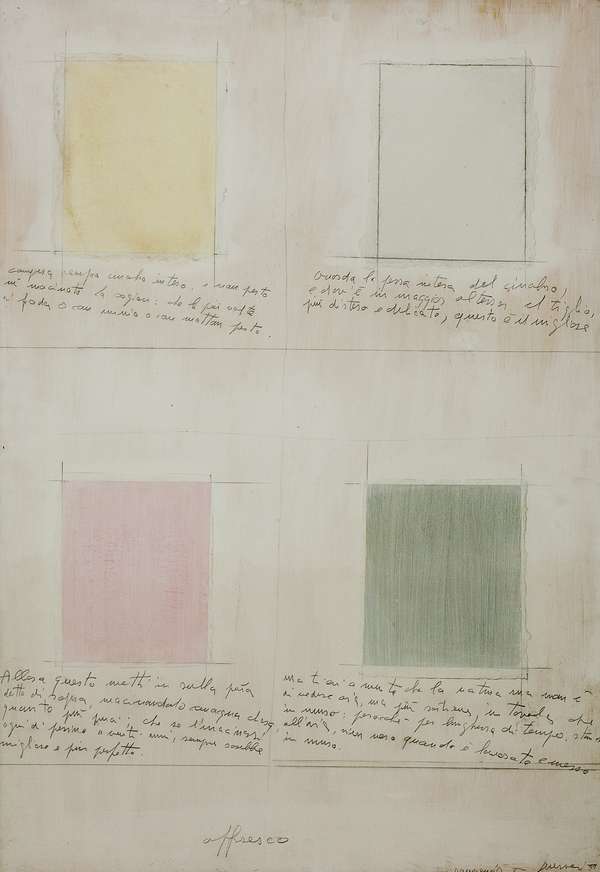 compera sempre cinabro intero, e non pesto
nè macinato la cagion: chè le più volte
si froda o con minio o con matton pesto.
Guarda la pezza intera del cinabro,
e dov'è in maggior altezza, el tiglio,
più disteso e delicato, questo è il migliore
Allora questo metti in sulla pria
detta di sopra, macinandolo con acqua chiara
quanto più puoi; che se l'macinassi
ogni dì persino a venti anni, sempre sarebbe
migliore e più perfetto.
ma ti che la natura sua non è
di vedere aria, ma più sostiene in tavola che
in muro; perocchè per lunghezza di tempo,
all'aria, vien nero quando è lavorato e messo
in muro.
affresco